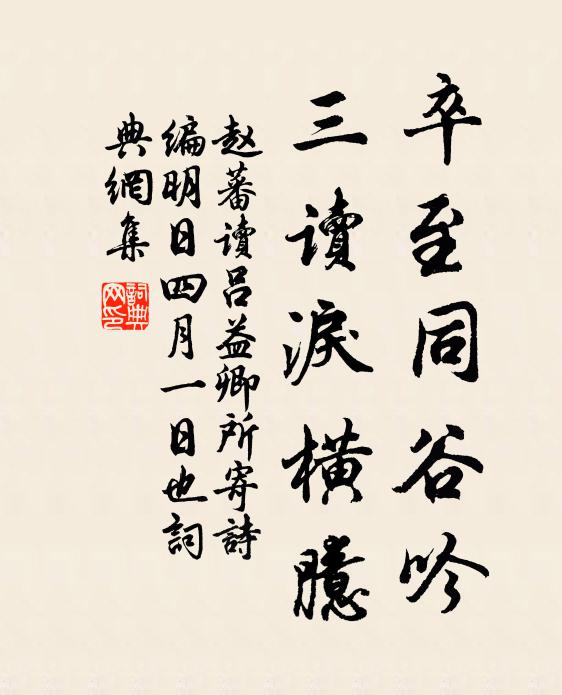 卒至同谷吟
三讀淚橫臆
赵蕃讀吕益卿所寄詩
编明日四月一日也詞
典網集
詞典網印